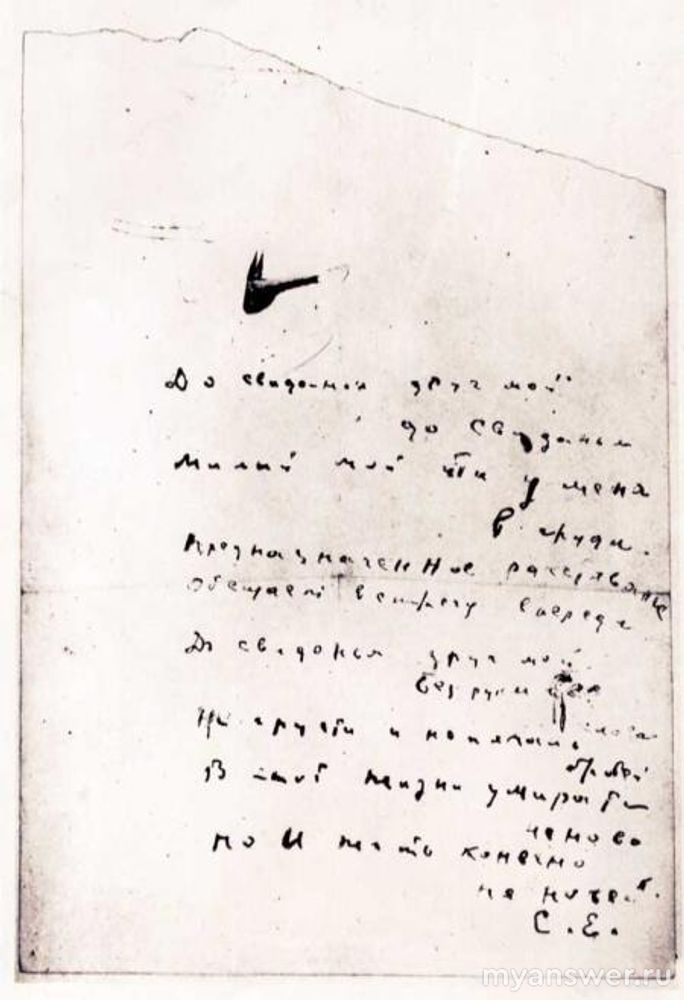 До свиданья друг мой
до свиданья
Милый мой ты у меня
в груди.
Предназначенное расставанье
Обещает встречу впереди
До свиданья друг мой
без руки
слова
Не грусти и не печаль
бровей
В этой жизни умирать
не ново
но И жить конечно
не новей.
С.Е.
myanswer.ru